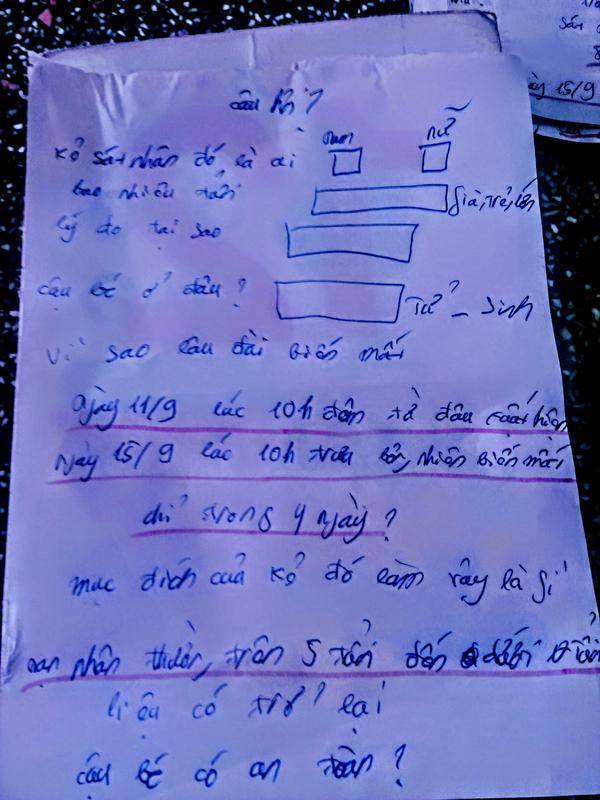 câu hỏi?
Kẻ sát nhân đó là ai
Nam
nữ
bao nhiêu tuổi
già, trẻ, lớn
lý do tại sao
cậu bé ở đâu?
Tử - Sinh
vì sao lâu đài biến mất
Ngày 11/9 lúc 10h đêm từ đâu xuất hiện
Ngày 15/9 lúc 10h trưa biến mất
chỉ trong 4 ngày?
mục đích của kẻ đó làm vậy là gì
nạn nhân trên 5 tuổi đến dưới
liệu có trở lại
cậu bé có an toàn?
sát
ày 15/9